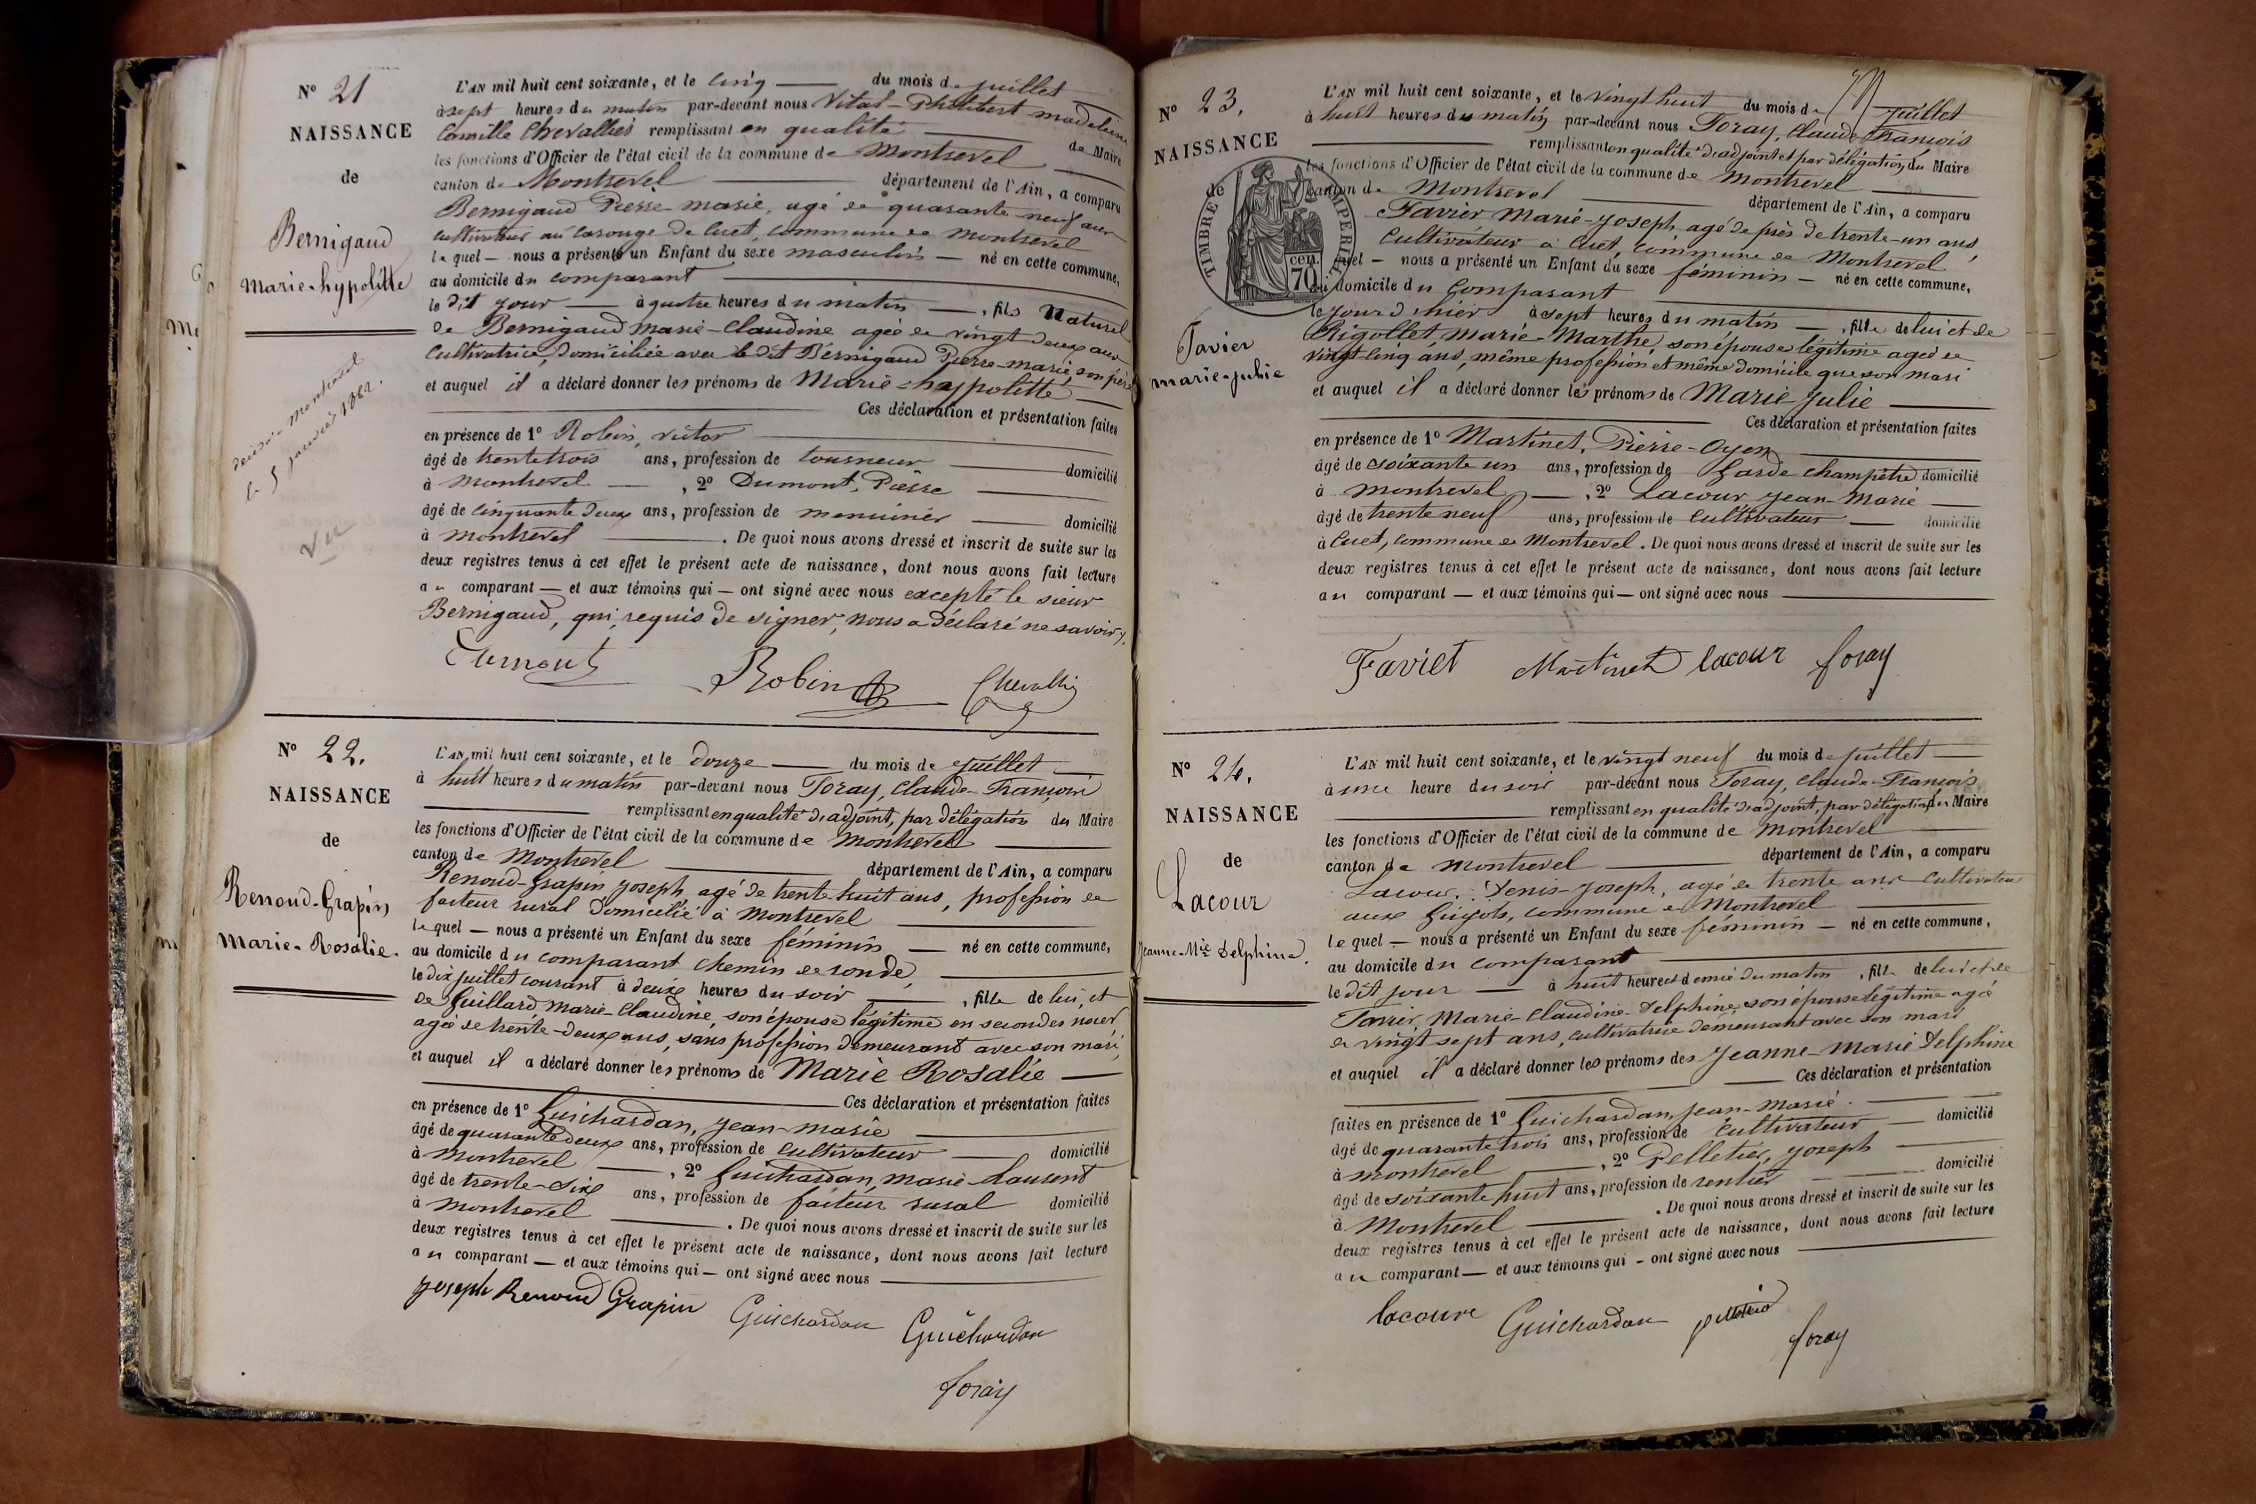 N° 21
NAISSANCE
de
Bernigaud
Marie-hypolitte
décédé à Montrevel
le 5 janvier 1862.
Vu
L'AN mil huit cent soixante, et le cinq du mois de juillet
à sept heures du matin par-devant nous Vital-Philibert Madeleine
Camille Chevallier remplissant en qualité de Maire
les fonctions d'Officier de l'état civil de la commune de Montrevel
canton de Montrevel département de l'Ain, a comparu
Bernigaud Pierre-marie, agé de quarante-neuf ans
cultivateur au carouge de Cuet, commune de Montrevel
lequel — nous a présenté un Enfant du sexe masculin — né en cette commune,
au domicile du comparant
le dit jour — à quatre heures du matin —, fils Naturel
de Bernigaud marie-Claudine agée de vingt deux ans
cultivatrice, domiciliée avec le dit Bernigaud Pierre-marie, son père
et auquel il a déclaré donner les prénoms de Marie-hypolitte
Ces déclaration et présentation faites
en présence de 1° Robin, victor
âgé de trente trois ans, profession de tourneur domicilié
à montrevel —, 2° Dumont, Pierre
âgé de cinquante deux ans, profession de menuisier domicilié
à montrevel. De quoi nous avons dressé et inscrit de suite sur les
deux registres tenus à cet effet le présent acte de naissance, dont nous avons fait lecture
au comparant — et aux témoins qui — ont signé avec nous excepté le sieur
Bernigaud, qui, requis de signer, nous a déclaré ne savoir.
Dumont Robin Chevallier
N° 22.
NAISSANCE
de
Renoud-Grapin
Marie-Rosalie.
L'AN mil huit cent soixante, et le douze du mois de juillet
à huit heures du matin par-devant nous Foray, Claude-François
remplissant en qualité d'adjoint, par délégation du Maire
les fonctions d'Officier de l'état civil de la commune de Montrevel
canton de Montrevel département de l'Ain, a comparu
Renoud-Grapin Joseph, agé de trente huit ans, profession de
facteur rural domicilié à Montrevel
lequel — nous a présenté un Enfant du sexe féminin — né en cette commune,
au domicile du comparant chemin de ronde,
le dix juillet courant à deux heures du soir, fille de lui, et
de Guillard marie-Claudine, son épouse légitime en secondes noces
agée de trente-deux ans, sans profession demeurant avec son mari,
et auquel il a déclaré donner les prénoms de Marie Rosalie
Ces déclaration et présentation faites
en présence de 1° Guichardan, Jean-marie
âgé de quarante deux ans, profession de cultivateur domicilié
à montrevel, 2° Guichardan, marie-Laurent
âgé de trente-six ans, profession de facteur rural domicilié
à montrevel. De quoi nous avons dressé et inscrit de suite sur les
deux registres tenus à cet effet le présent acte de naissance, dont nous avons fait lecture
au comparant — et aux témoins qui — ont signé avec nous
Joseph Renoud Grapin Guichardan Guichardan
foray
N° 23.
NAISSANCE
de
TIMBRE IMPERIAL
70 cen.
Favier
marie-julie
L'AN mil huit cent soixante, et le vingt huit du mois de juillet
à huit heures du matin par-devant nous Foray, Claude-François
remplissant en qualité d'adjoint et par délégation, du Maire
les fonctions d'Officier de l'état civil de la commune de Montrevel
canton de Montrevel département de l'Ain, a comparu
Favier Marie-Joseph, agé de près de trente-un ans,
Cultivateur à Cuet, Commune de Montrevel
lequel — nous a présenté un Enfant du sexe féminin — né en cette commune,
au domicile du comparant
le jour d'hier à sept heures du matin —, fille de lui et de
Rigollet, Marie-Marthe, son épouse légitime agée de
vingt-cinq ans, même profession et même domicile que son mari
et auquel il a déclaré donner les prénoms de Marie Julie
Ces déclaration et présentation faites
en présence de 1° Martinet, Pierre-Oyen
âgé de soixante un ans, profession de Garde champêtre domicilié
à montrevel —, 2° Lacour Jean-Marie
âgé de trente neuf ans, profession de cultivateur — domicilié
à Cuet, commune de Montrevel. De quoi nous avons dressé et inscrit de suite sur les
deux registres tenus à cet effet le présent acte de naissance, dont nous avons fait lecture
au comparant — et aux témoins qui — ont signé avec nous
Faviet Martinet lacour foray
N° 24.
NAISSANCE
de
Lacour
Jeanne-Mie Delphine.
L'AN mil huit cent soixante, et le vingt neuf du mois de juillet
à une heure du soir par-devant nous Foray, Claude-François
remplissant en qualité d'adjoint, par délégation du Maire
les fonctions d'Officier de l'état civil de la commune de Montrevel
canton de Montrevel département de l'Ain, a comparu
Lacour, Denis-Joseph, agé de trente ans cultivateur
aux Guigots, commune de Montrevel
lequel — nous a présenté un Enfant du sexe féminin — né en cette commune,
au domicile du comparant
le dit jour — à huit heures et demie du matin, fille de lui et de
Favier, Marie-Claudine-Delphine, son épouse légitime agée
de vingt sept ans, cultivatrice demeurant avec son mari
et auquel il a déclaré donner les prénoms des Jeanne-Marie Delphine
Ces déclaration et présentation
faites en présence de 1° Guichardan, Jean-Marie.
âgé de quarante trois ans, profession de cultivateur — domicilié
à montrevel, 2° Pelletier, Joseph
âgé de soixante huit ans, profession de rentier domicilié
à Montrevel. De quoi nous avons dressé et inscrit de suite sur les
deux registres tenus à cet effet le présent acte de naissance, dont nous avons fait lecture
au comparant — et aux témoins qui - ont signé avec nous
lacour Guichardan pelletier
foray